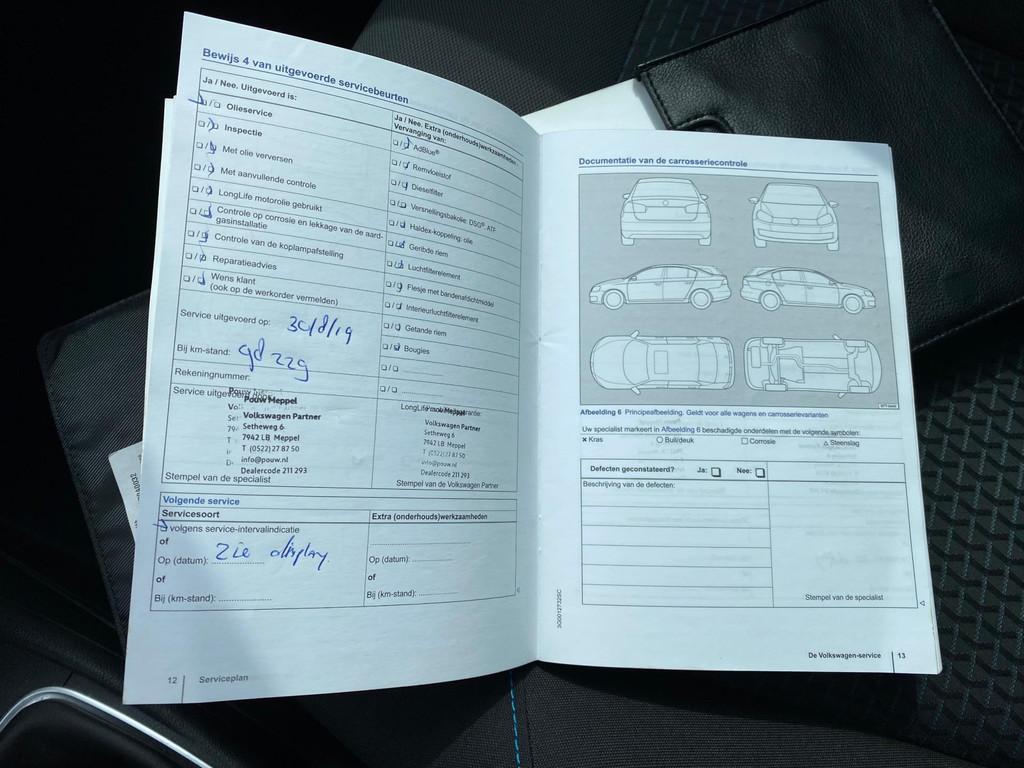 Bewijs 4 van uitgevoerde servicebeurten
Ja / Nee. Uitgevoerd is:
Olieservice
Inspectie
Met olie verversen
Met aanvullende controle
LongLife motorolie gebruikt
Controle op corrosie en lekkage van de aard-
gasinstallatie
Controle van de koplampafstelling
Reparatieadvies
Wens klant
(ook op de werkorder vermelden)
Service uitgevoerd op: 30/8/19
Bij km-stand:
Rekeningnummer:
Service uitgevoerd
Pouw Meppel
Volkswagen Partner
Setheweg 6
7942 LB Meppel
T (0522) 27 87 50
info@pouw.nl
Dealercode 211 293
Stempel van de specialist
Ja / Nee. Extra (onderhouds)werkzaamheden
Vervanging van:
AdBlue®
Remvloeistof
Dieselfilter
Versnellingsbakolie: DSG®, ATF
Haldex-koppeling: olie
Geribde riem
Luchtfilterelement
Flesje met bandenafdichtmiddel
Interieurluchtfilterelement
Getande riem
Bougies
Volkswagen Partner
Setheweg 6
7942 LB Meppel
T (0522) 27 87 50
info@pouw.nl
Dealercode 211 293
Stempel van de Volkswagen Partner
Volgende service
Servicesoort
Extra (onderhouds)werkzaamheden
volgens service-intervalindicatie
of
Op (datum): zie display
of
Bij (km-stand):
Op (datum):
of
Bij (km-stand):
12 Serviceplan
Documentatie van de carrosseriecontrole
Afbeelding 6 Principeafbeelding. Geldt voor alle wagens en carrosserievarianten
Uw specialist markeert in Afbeelding 6 beschadigde onderdelen met de volgende symbolen:
x Kras O Buil/deuk □ Corrosie △ Steenslag
Defecten geconstateerd? Ja: □ Nee: □
Beschrijving van de defecten:
Stempel van de specialist
3G0012732SC
De Volkswagen-service 13